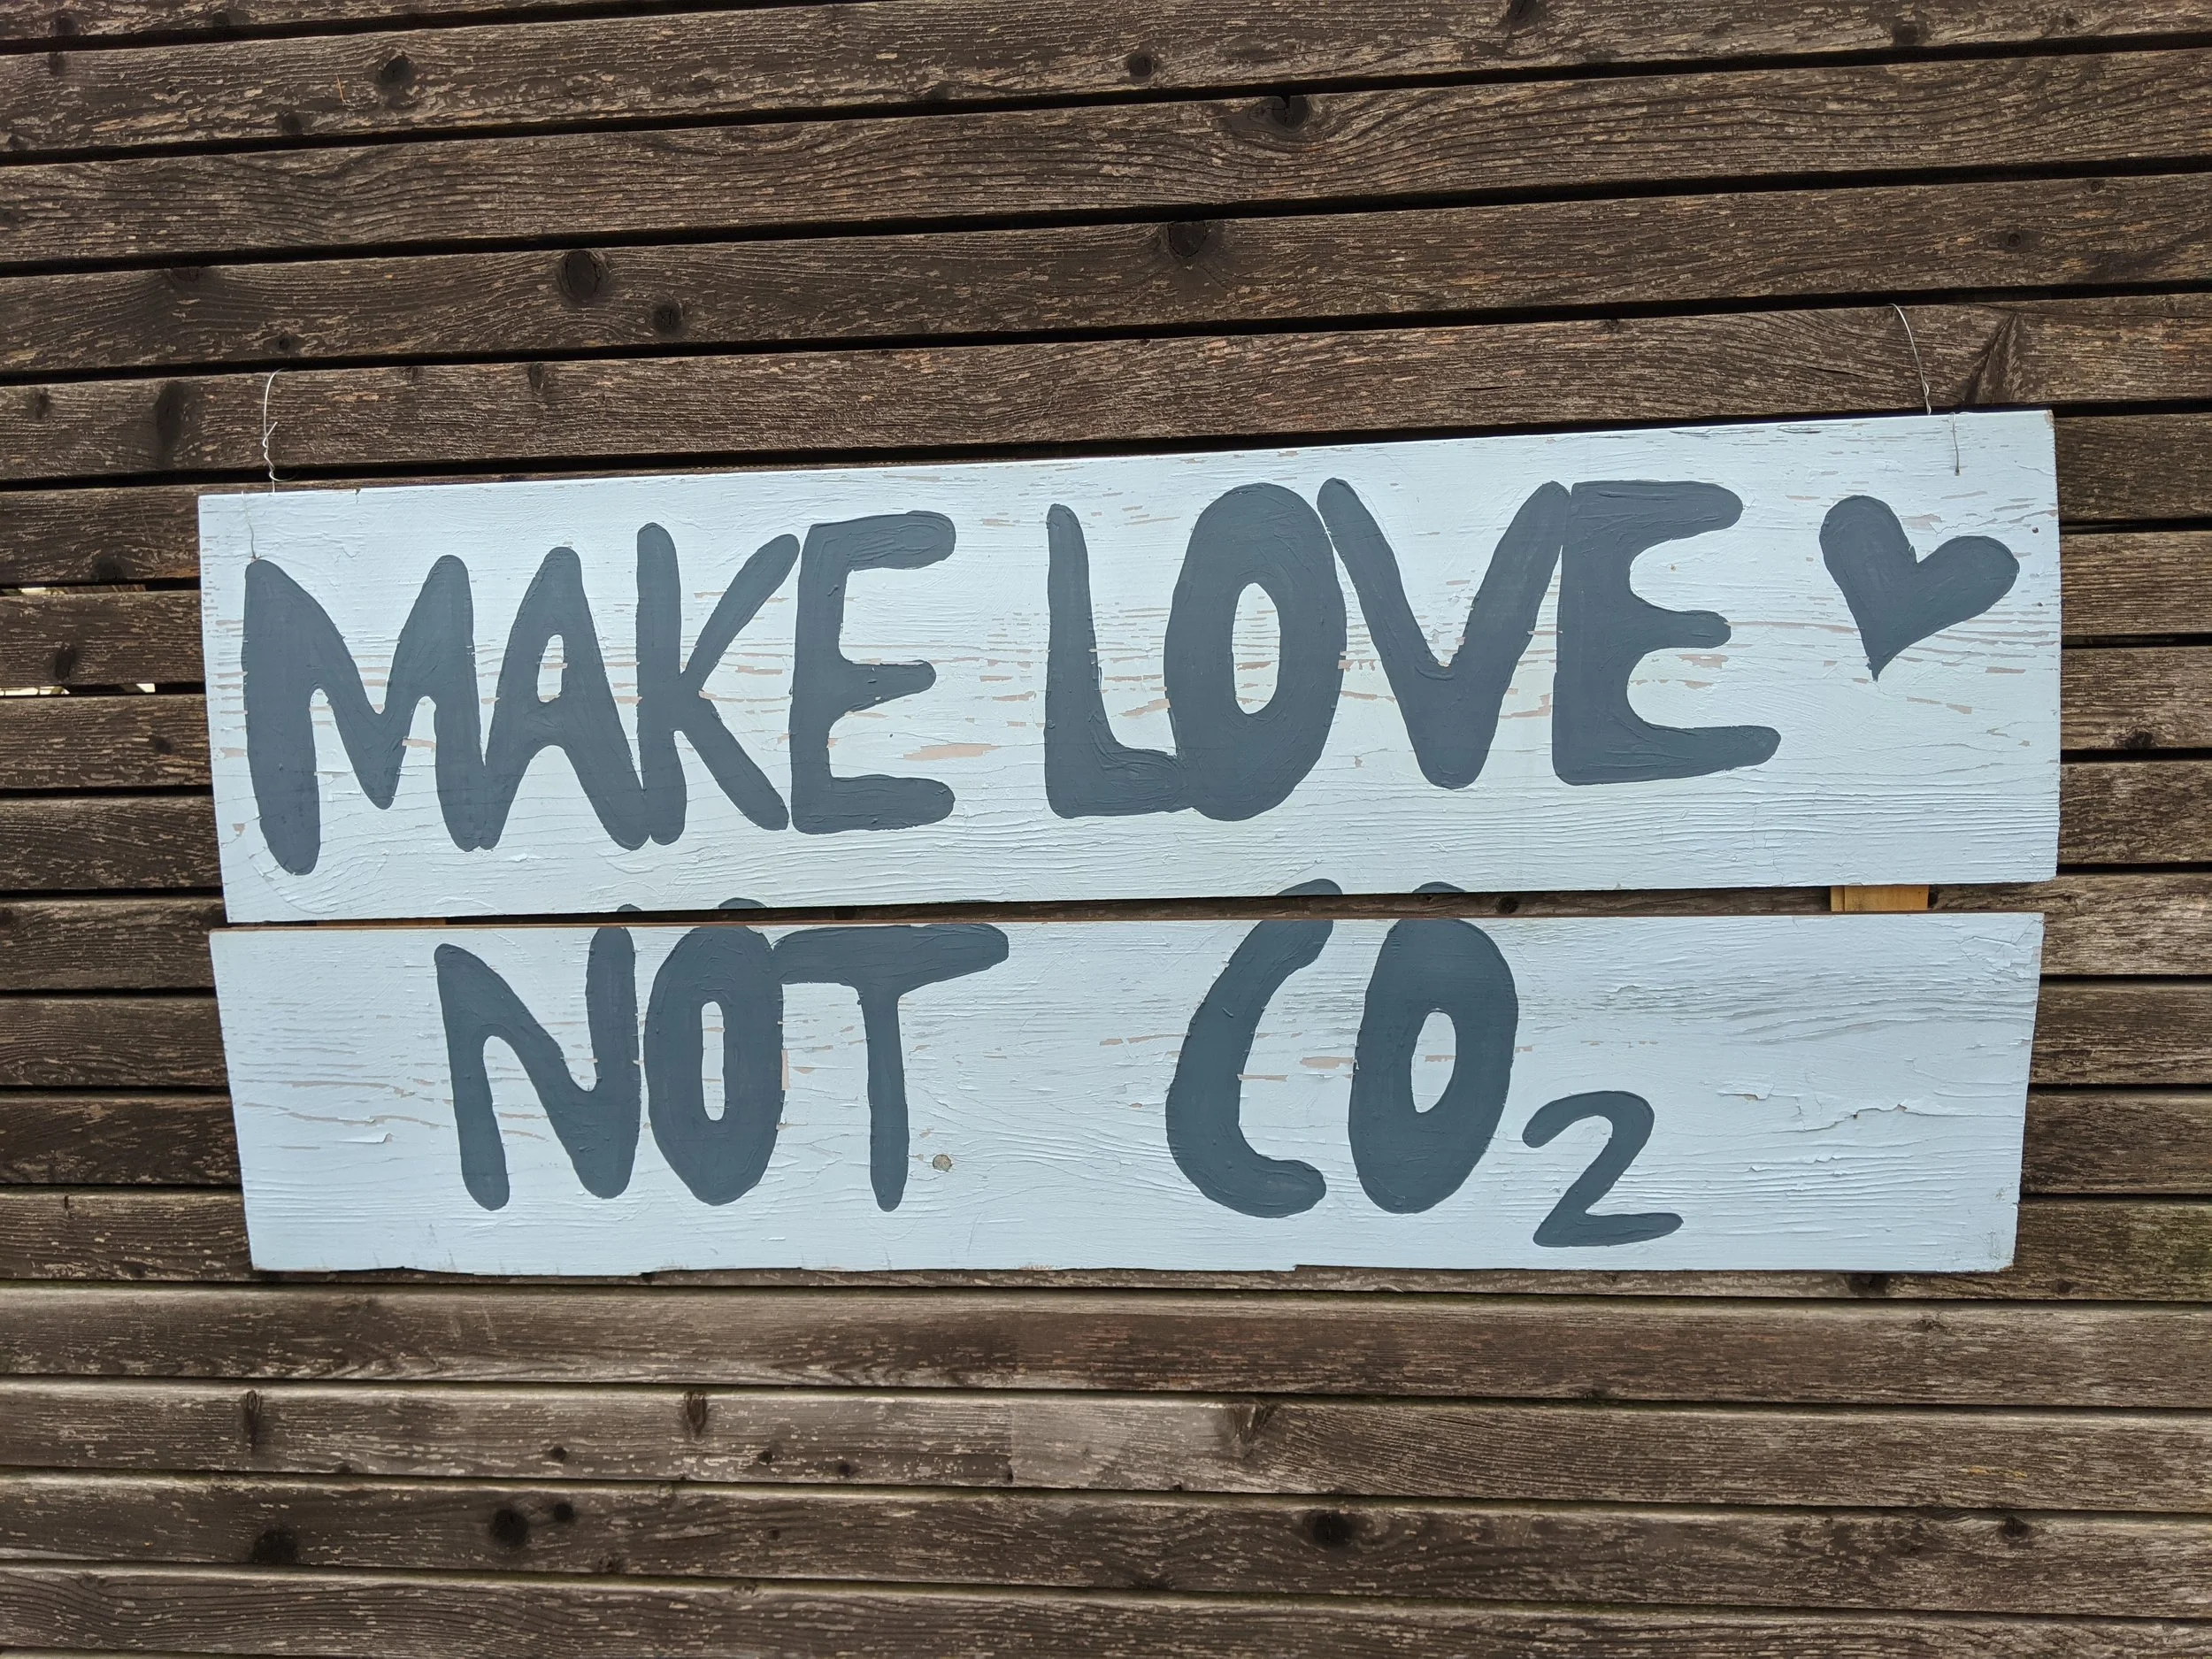 MAKE LOVE ♥
NOT CO₂